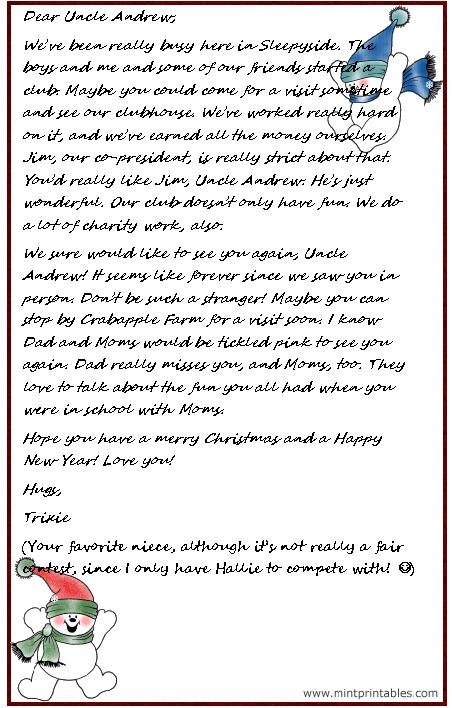 Dear Uncle Andrew,
We've been really busy here in Sleepyside. The
boys and me and some of our friends started a
club. Maybe you could come for a visit sometime
and see our clubhouse. We've worked really hard
on it, and we've earned all the money ourselves.
Jim, our co-president, is really strict about that.
You'd really like Jim, Uncle Andrew. He's just
wonderful. Our club doesn't only have fun. We do
a lot of charity work, also.
We sure would like to see you again, Uncle
Andrew! It seems like forever since we saw you in
person. Don't be such a stranger! Maybe you can
stop by Crabapple Farm for a visit soon. I know
Dad and Moms would be tickled pink to see you
again. Dad really misses you, and Moms, too. They
love to talk about the fun you all had when you
were in school with Moms.
Hope you have a merry Christmas and a Happy
New Year! Love you!
Hugs,
Trixie
(Your favorite niece, although it's not really a fair
contest, since I only have Hallie to compete with! ☺)
www.mintprintables.com